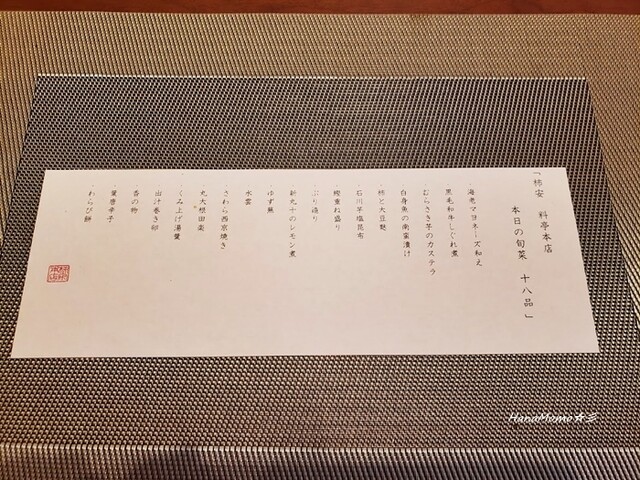 「柿安　料亭本店
本日の旬菜　十八品」
海老マヨネーズ和え
黒毛和牛しぐれ煮
むらさき芋のカステラ
白身魚の南蛮漬け
柿と大豆麩
石川芋塩昆布
鰹重ね盛り
ぶり造り
新丸十のレモン煮
ゆず蕪
水雲
さわら西京焼き
丸大根田楽
くみ上げ湯葉
出汁巻き卵
香の物
葉唐辛子
わらび餅
HanaMomo☆彡